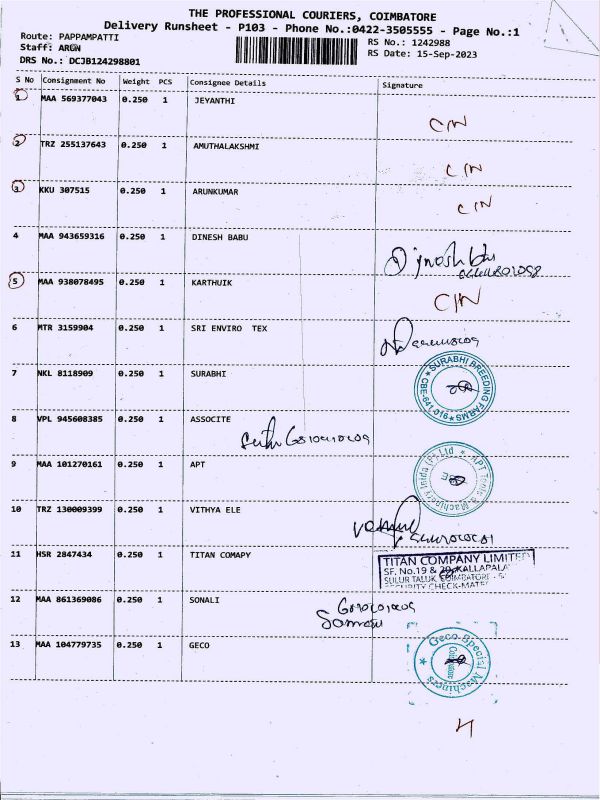 THE PROFESSIONAL COURIERS, COIMBATORE
Delivery Runsheet - P103 - Phone No.:0422-3505555 - Page No.:1
Route: PAPPAMPATTI
RS No.: 1242988
Staff: ARUN
RS Date: 15-Sep-2023
DRS No.: DCJB124298801
S No Consignment No Weight PCS Consignee Details Signature
1 MAA 569377043 0.250 1 JEYANTHI
C/N
2 TRZ 255137643 0.250 1 AMUTHALAKSHMI
C/N
3 KKU 307515 0.250 1 ARUNKUMAR
C/N
4 MAA 943659316 0.250 1 DINESH BABU
5 MAA 938078495 0.250 1 KARTHUIK
C/N
6 MTR 3159904 0.250 1 SRI ENVIRO TEX
7 NKL 8118909 0.250 1 SURABHI
SURABHI BREEDING FARMS
CBE-641 016
8 VPL 945608385 0.250 1 ASSOCITE
9 MAA 101270161 0.250 1 APT
APT Tools & Machinery India (P) Ltd
10 TRZ 130009399 0.250 1 VITHYA ELE
11 HSR 2847434 0.250 1 TITAN COMAPY
TITAN COMPANY LIMITED
SF. No.19 & 20, KALLAPALA
SULUR TALUK, COIMBATORE
12 MAA 861369086 0.250 1 SONALI
13 MAA 104779735 0.250 1 GECO
Geco Special Machines
Coimbatore